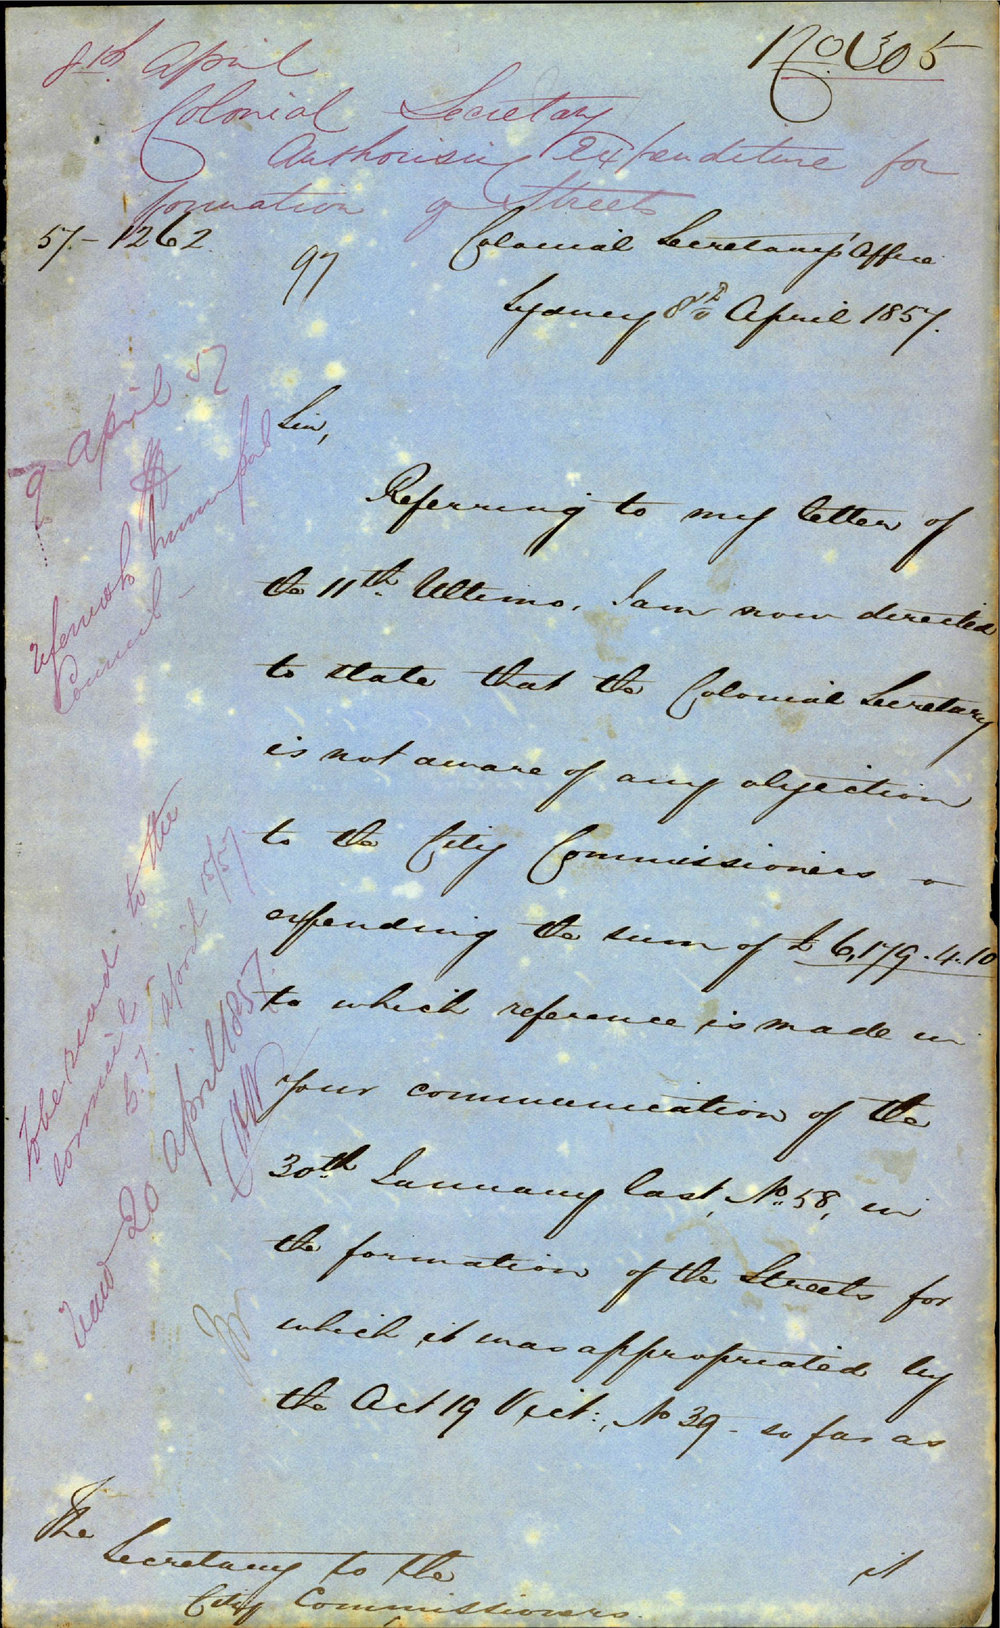 No. 305
8th April
Colonial Secretary
Authorising Expenditure for
formation of Streets
57.-1262
97
Colonial Secretary's Office
Sydney 8th April 1857.
Sir,
Referring to my letter of
the 11th Ultimo, I am now directed
to state that the Colonial Secretary
is not aware of any objection
to the City Commissioners
expending the sum of £6,179.4.10
to which reference is made in
your communication of the
30th January last, No. 58, in
the formation of the Streets for
which it was appropriated by
the Act 19 Vict:, No 39 - so far as
it
The
Secretary to the
City Commissioners.
9 April 57
Refer to Municipal
Council -
To be read to the
Council
April 1857
Read 20 April 1857.